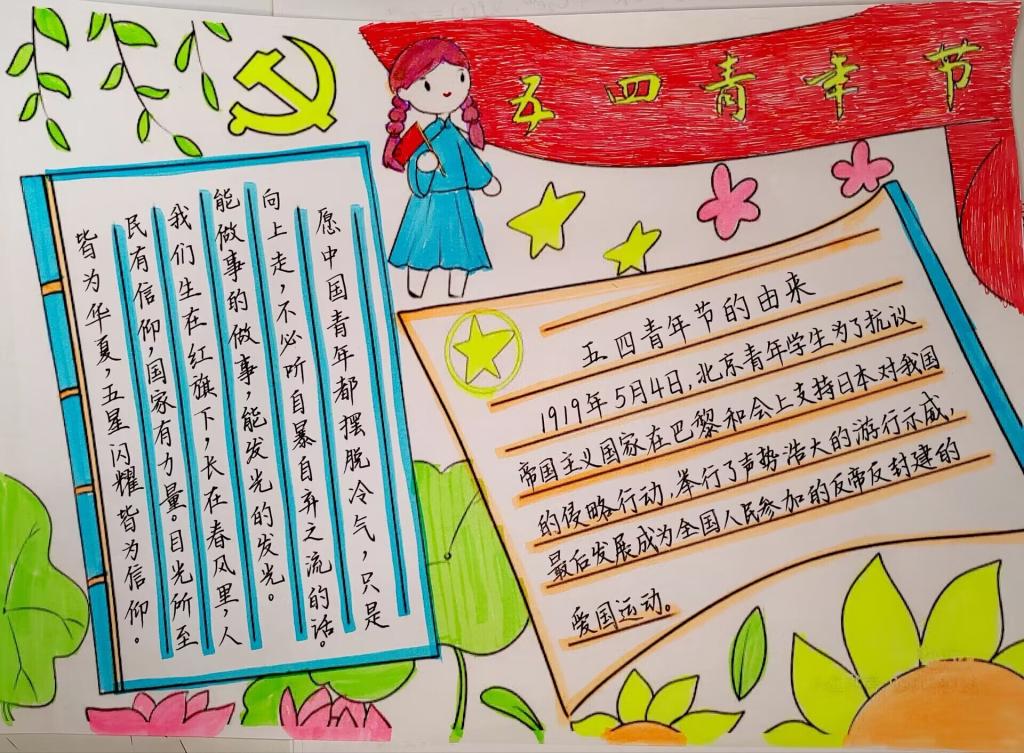 五四青年节
愿中国青年都摆脱冷气,只是
向上走,不必听自暴自弃之流的话。
能做事的做事,能发光的发光。
我们生在红旗下,长在春风里,人
民有信仰,国家有力量。目光所至
皆为华夏,五星闪耀皆为信仰。
五四青年节的由来
1919年5月4日,北京青年学生为了抗议
帝国主义国家在巴黎和会上支持日本对我国
的侵略行动,举行了声势浩大的游行示威,
最后发展成为全国人民参加的反帝反封建的
爱国运动。